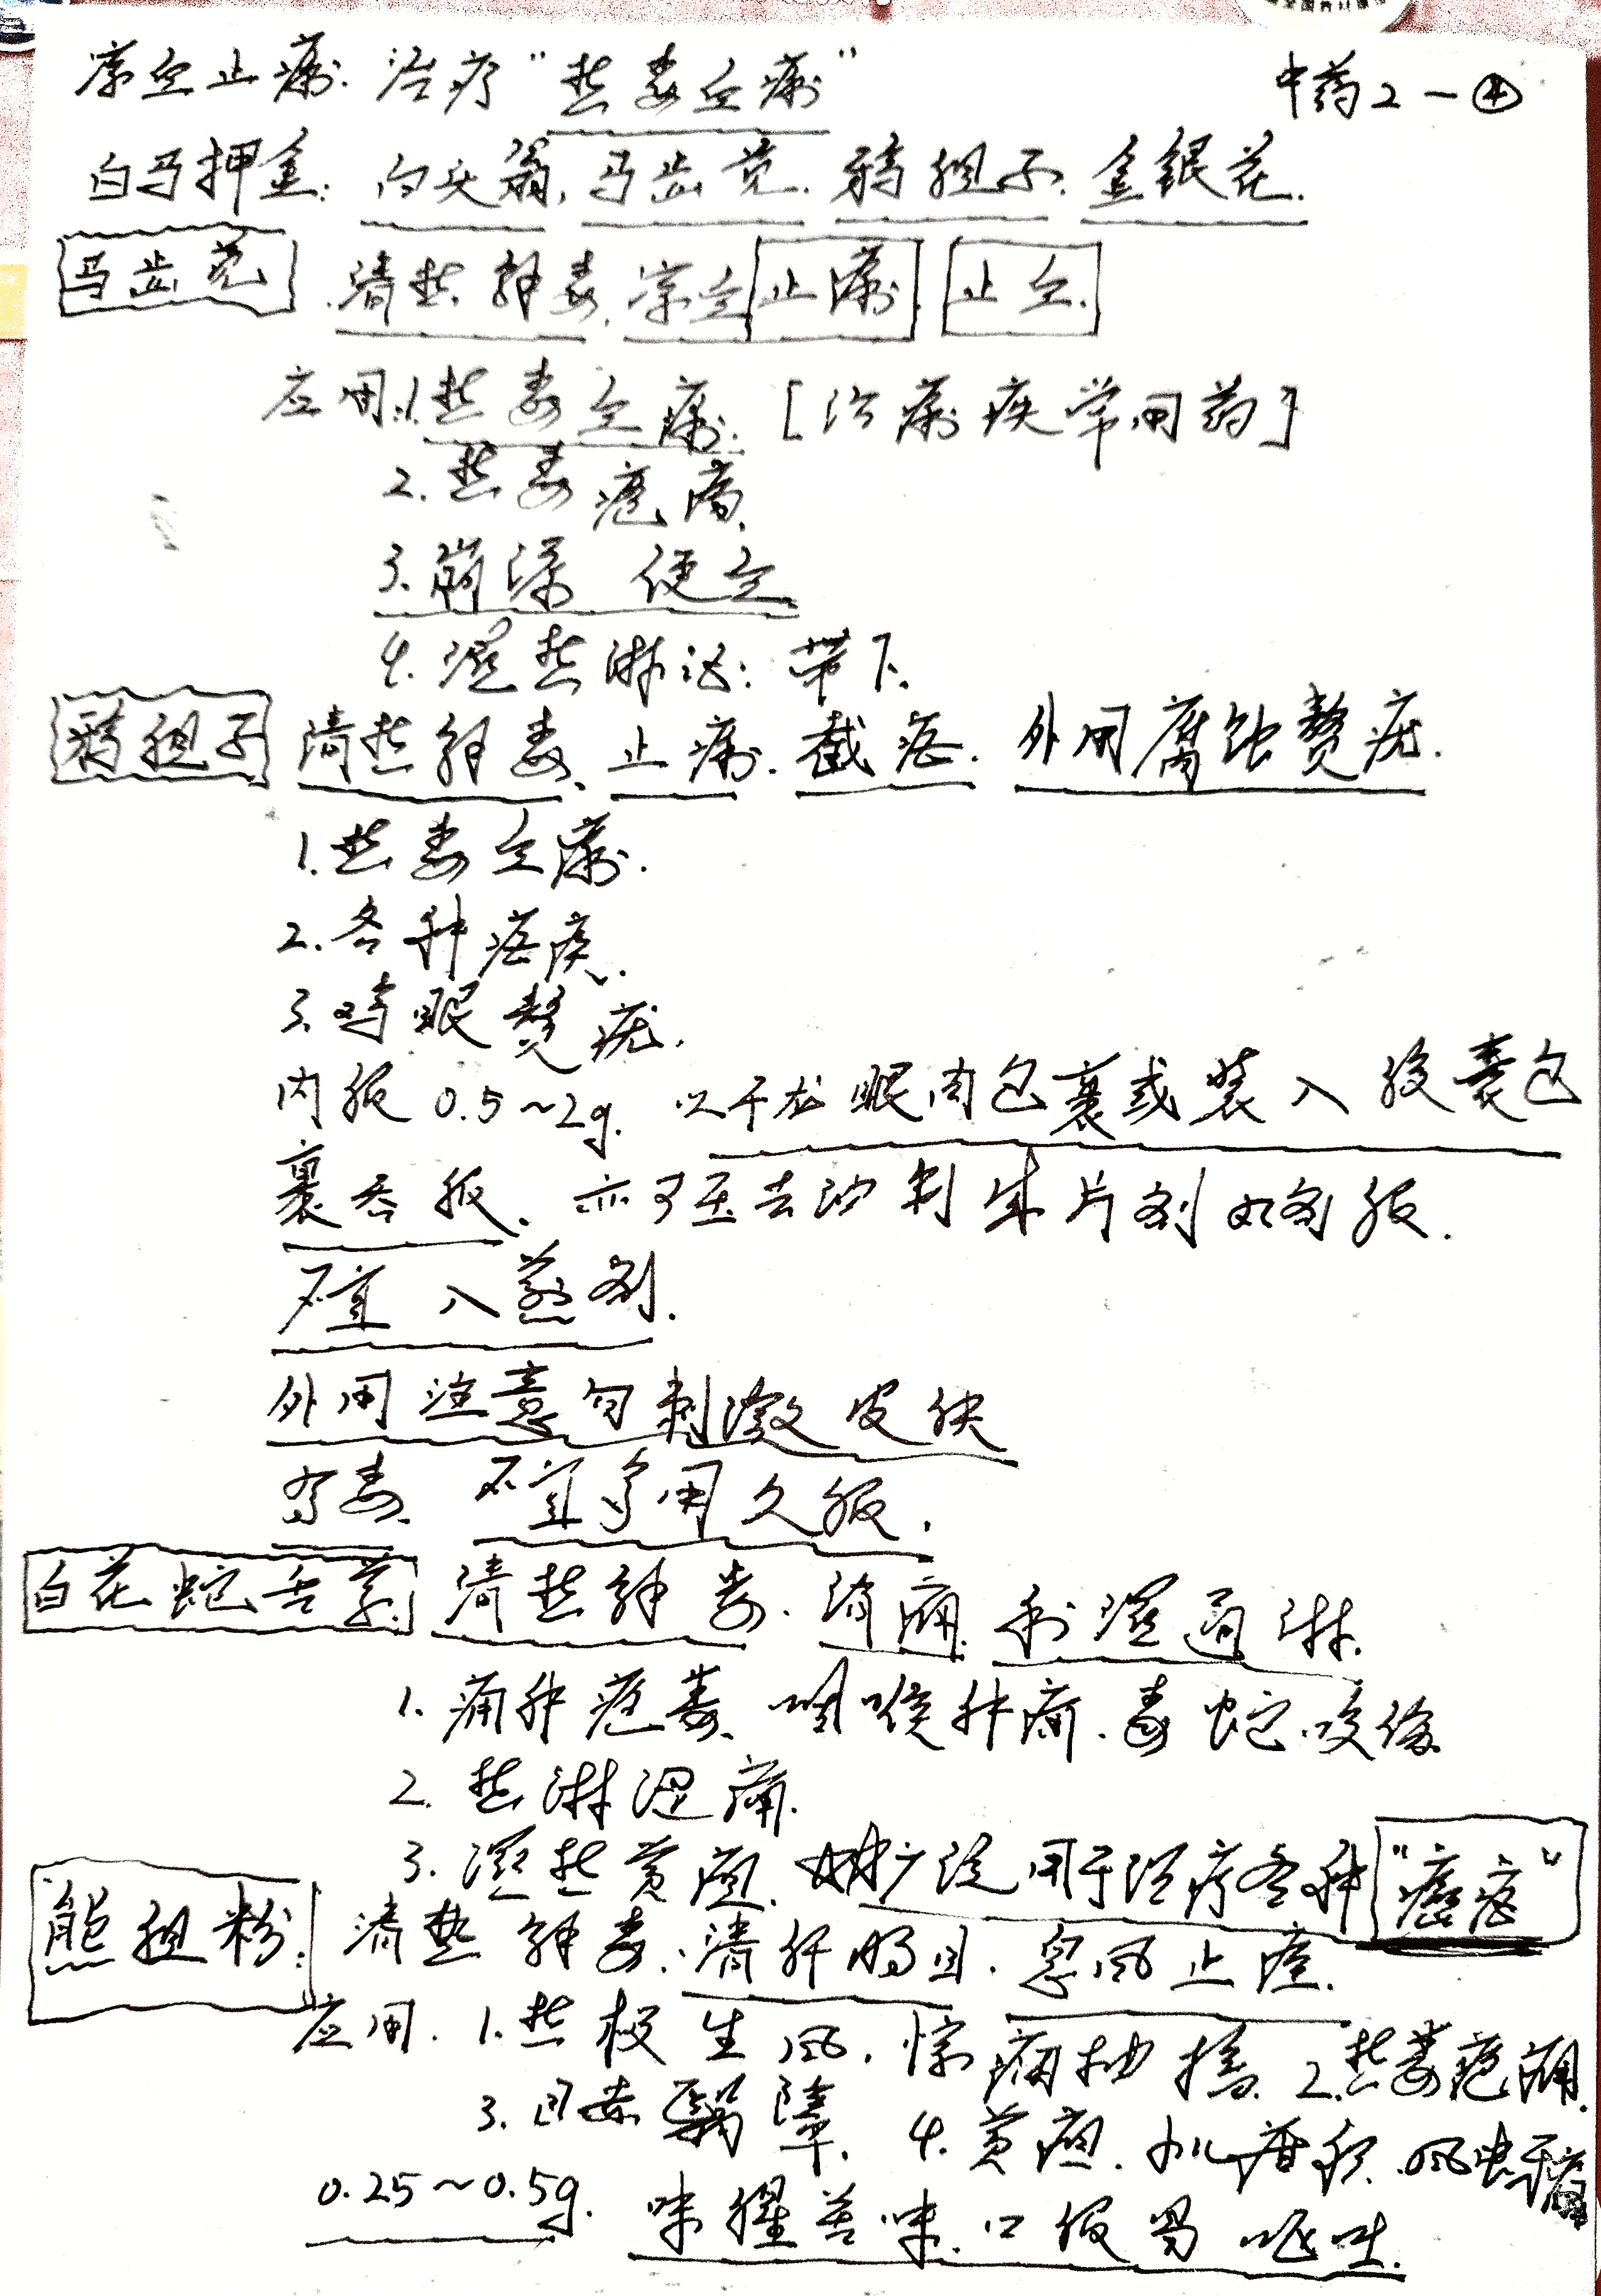 中药2-④
凉血止痢: 治疗"热毒血痢"
白马押金: 白头翁, 马齿苋. 鸦胆子. 金银花.
马齿苋 清热解毒, 凉血止痢. 止血.
应用:1.热毒血痢. [治痢疾常用药]
2.热毒疮疡.
3.崩漏 便血.
4.湿热淋证: 带下.
鸦胆子 清热解毒、止痢. 截疟. 外用腐蚀赘疣.
1.热毒血痢.
2.各种疟疾.
3.鸡眼赘疣.
内服0.5~2g. 以干龙眼肉包裹或装入胶囊包
裹吞服. 亦可压去油制成片剂 服.
不宜入煎剂.
外用注意勿刺激皮肤
有毒. 不宜多用久服.
白花蛇舌草. 清热解毒. 消痈. 利湿通淋.
1.痈肿疮毒、咽喉肿痛. 毒蛇咬伤.
2.热淋涩痛.
3.湿热黄疸. 广泛用于治疗各种"癌症"
熊胆粉: 清热解毒. 清肝明目. 息风止痉.
应用.1.热极生风. 惊痫抽搐. 2.热毒疮痈.
3.目赤翳障. 4.黄疸. 小儿疳积. 风虫牙痛
0.25~0.5g. 味腥苦味. 口服易呕吐.